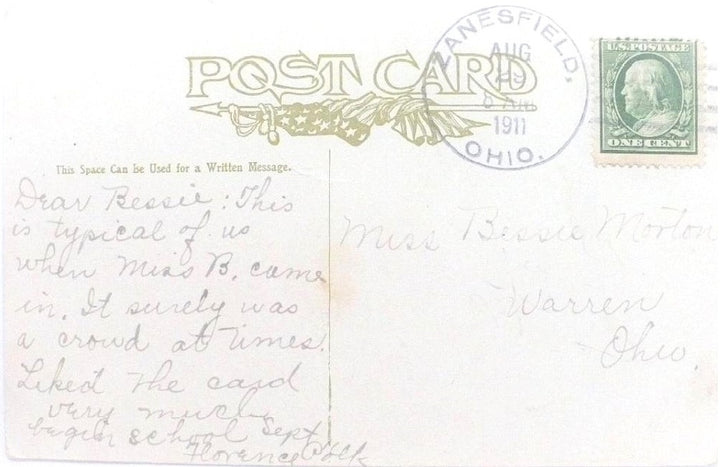 POST CARD
ZANESFIELD,
AUG
29
8 AM
1911
OHIO.
U.S. POSTAGE
ONE CENT
This Space Can be Used for a Written Message.
Dear Bessie: This
is typical of us
when Miss B. came
in. It surely was
a crowd at times.
Liked the card
very much
begin school Sept
Florence
Miss Bessie Morton
Warren
Ohio.